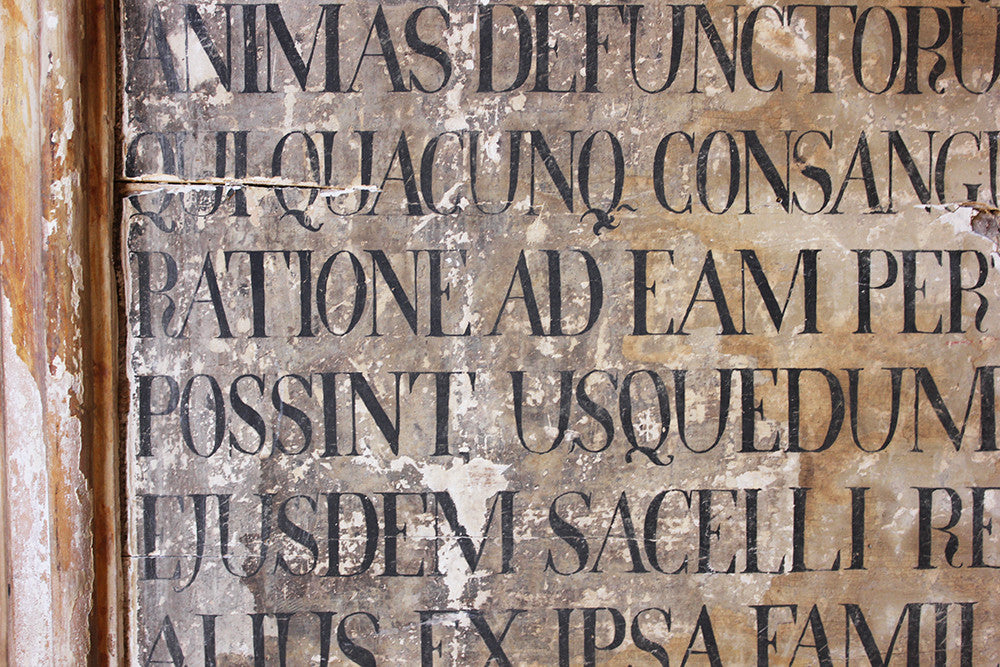 ANIMAS DEFUNCTORŪ
QUI QUACUNQ CONSANGU
RATIONE AD EAM PER
POSSINT. USQUEDUM
EJUSDEM SACELLI RE
ALIUS EX IPSA FAMIL